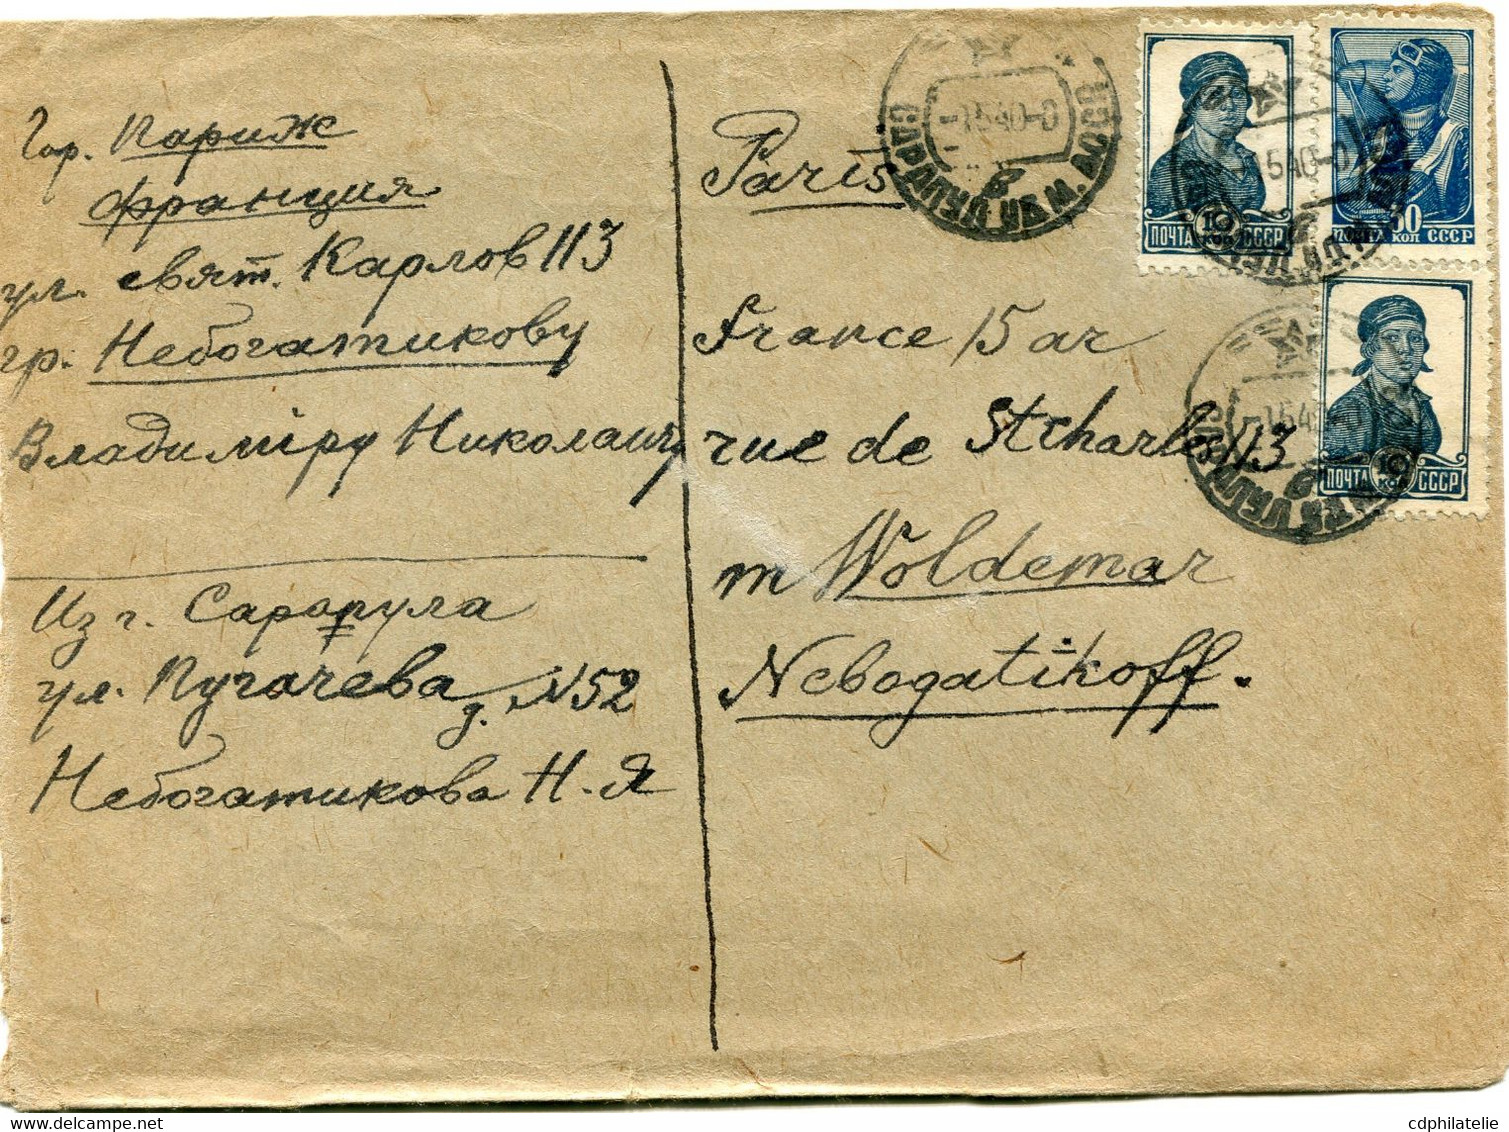 Гор. Париж
Франция
ул. свят. Карлов 113
гр. Небогатикову
Владимiру Николаичу
Из г. Сарапула
ул. Пугачева д. №52
Небогатикова Н-Я
Paris
France 15 ar
rue de St Charles 113
m Woldemar
Nebogatikoff.
САРАПУЛ УДМ. АССР
-1540-0
ПОЧТА 10 КОП СССР
КОП СССР
ПОЧТА 10 КОП СССР
cdphilatelie